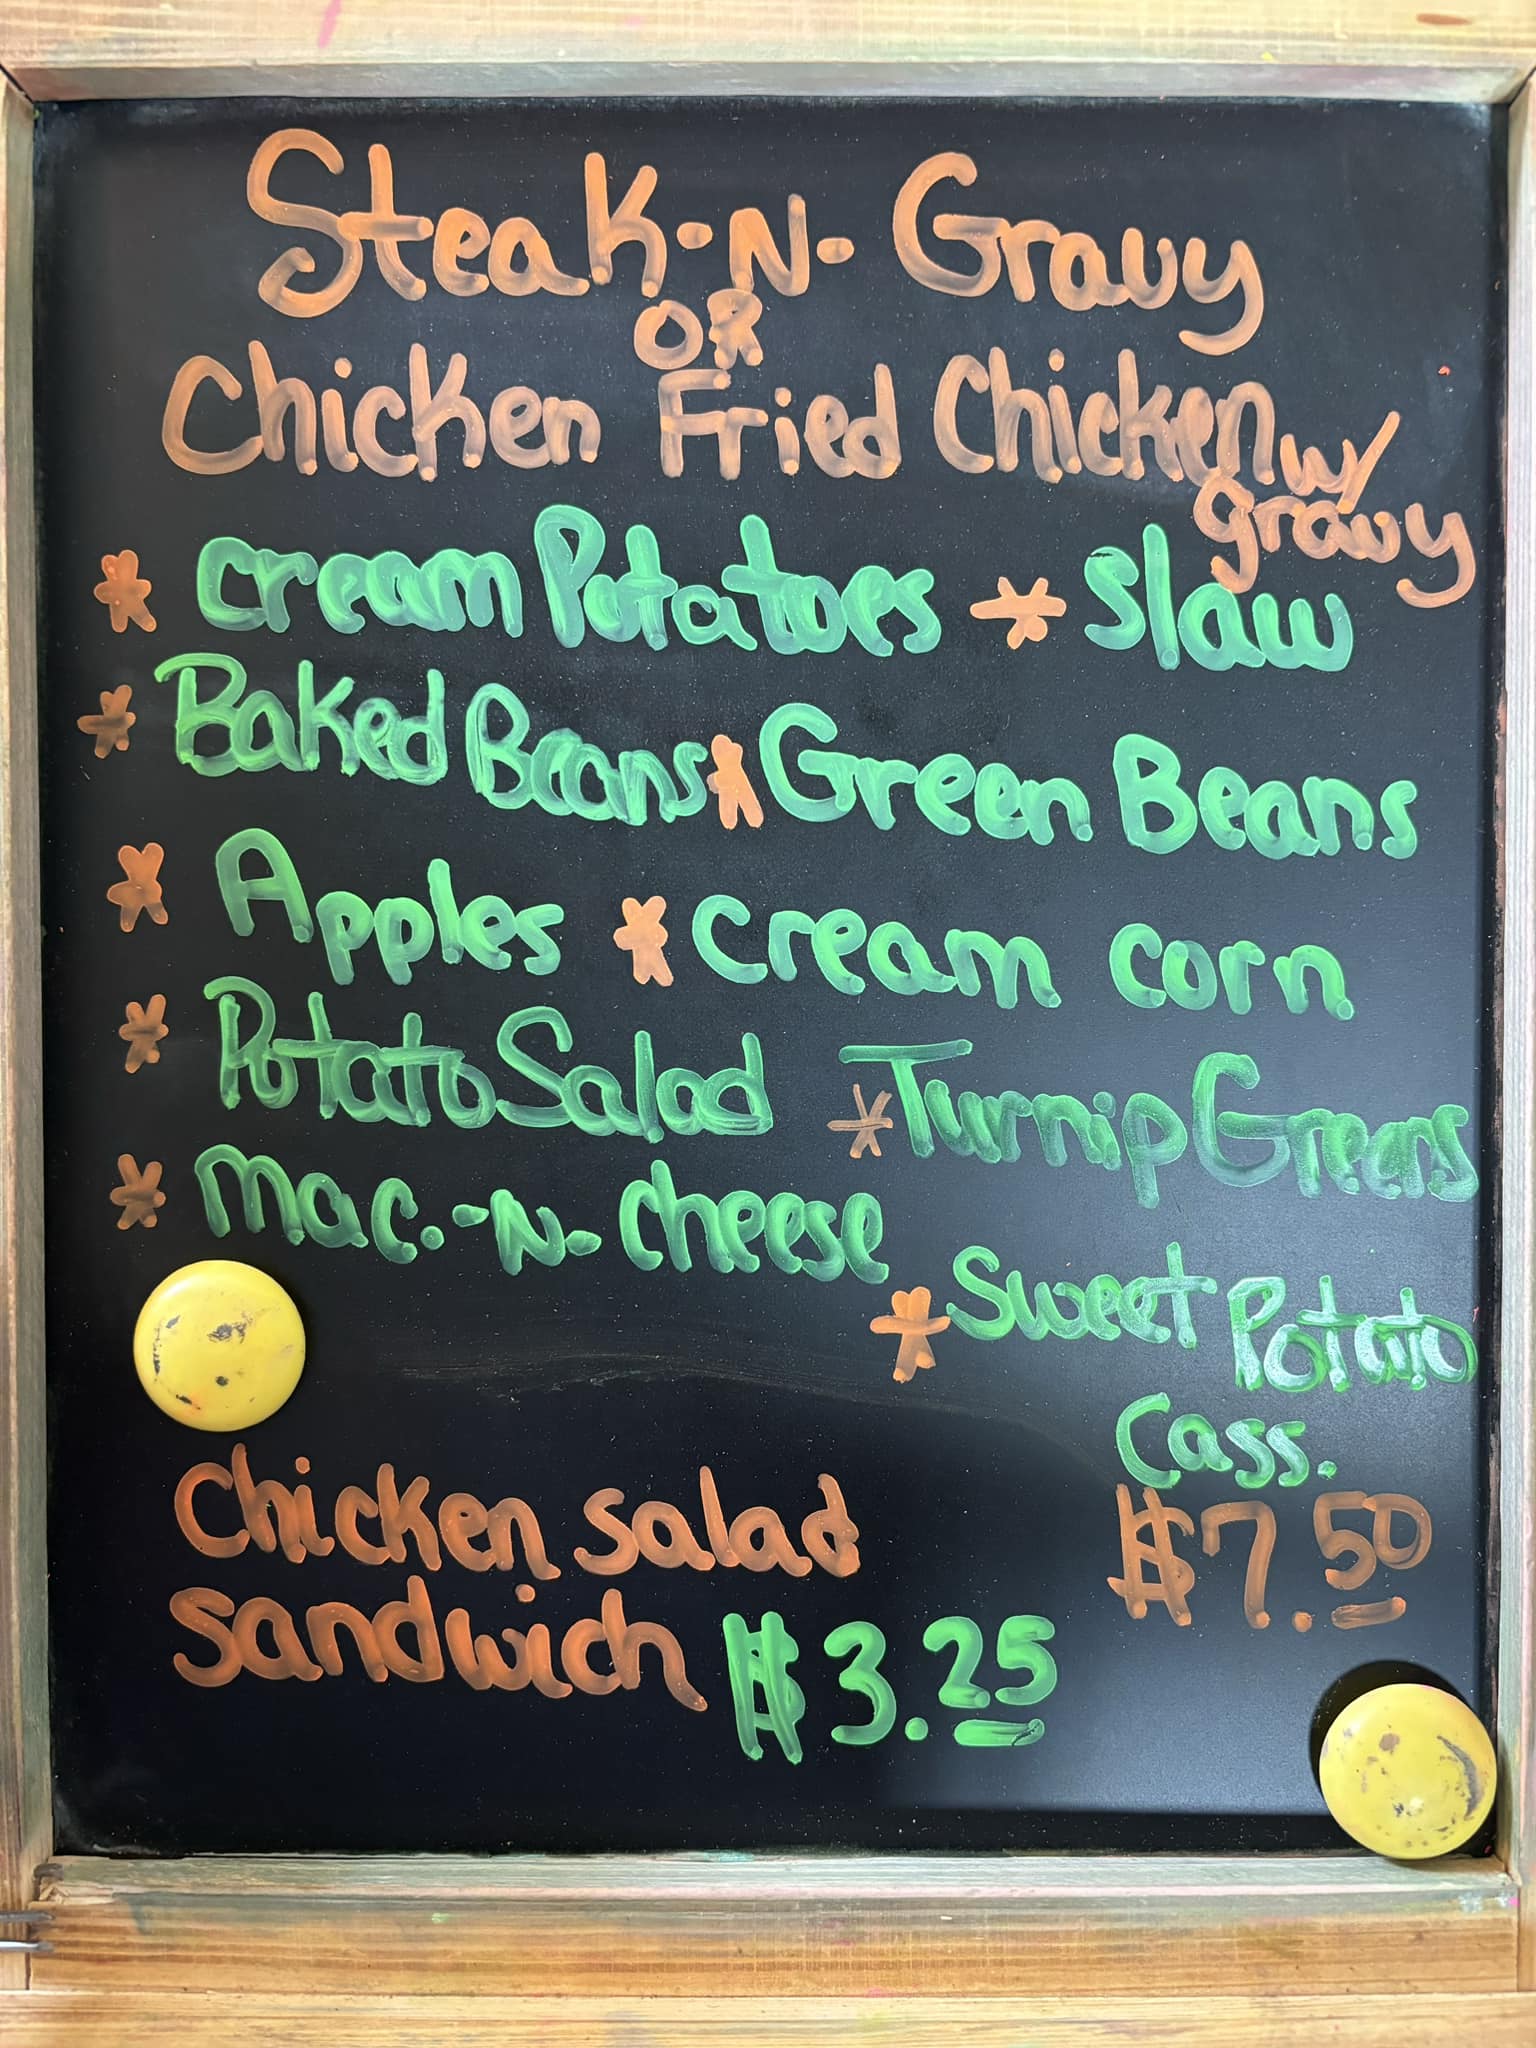 Steak-N-Gravy
OR
Chicken Fried Chicken w/
gravy
* cream Potatoes * slaw
* Baked Beans * Green Beans
* Apples * cream corn
* Potato Salad * Turnip Greens
* mac.-N-cheese
* Sweet Potato
Cass.
$7.50
Chicken salad
sandwich $3.25